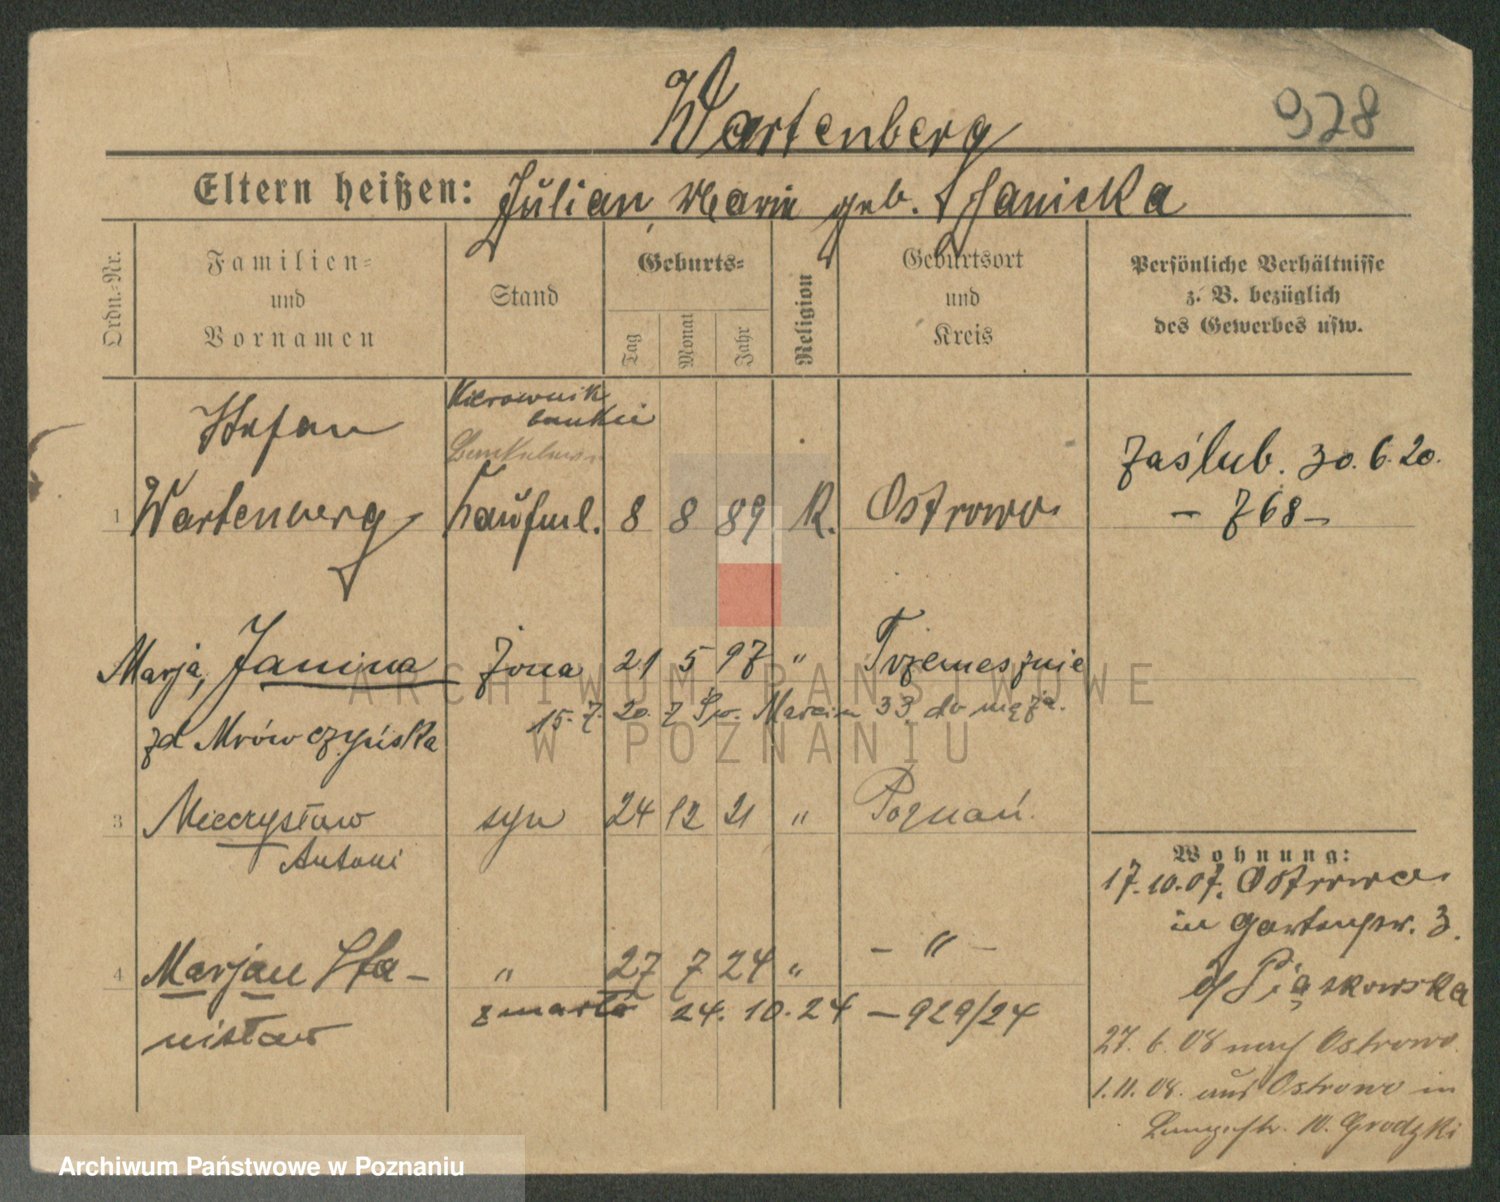 Wartenberg
928
Eltern heißen: Julian, Marie geb. Janicka
Ordn.-Nr.
Familien-
und
Vornamen
Stand
Geburts-
Tag
Monat
Jahr
Religion
Geburtsort
und
Kreis
Persönliche Verhältnisse
z. B. bezüglich
des Gewerbes usw.
Kierownik
banku
Stefan
1 Wartenberg Kaufml. 8 8 89 K. Ostrowo
zaślub. 30.6.20.
- 768 -
Marja, Janina żona 21 5 97 " Trzemesznie
zd Mrówczyńska
15.7. 20. z Św. Marcin 33 do męża.
3 Mieczysław syn 24 12 21 " Poznań.
Antoni
4 Marjan Sta- " 27 7 24 " - " -
nisław
zmarło 24.10.24 - 929/24
Wohnung:
17.10.07. Ostrowo
in Gartenstr. 3.
b/ Piąskowska
27.6.08 nach Ostrowo.
1.11.08. aus Ostrowo in
Langestr. 10. Grodzki
ARCHIWUM PAŃSTWOWE
W POZNANIU
Archiwum Państwowe w Poznaniu